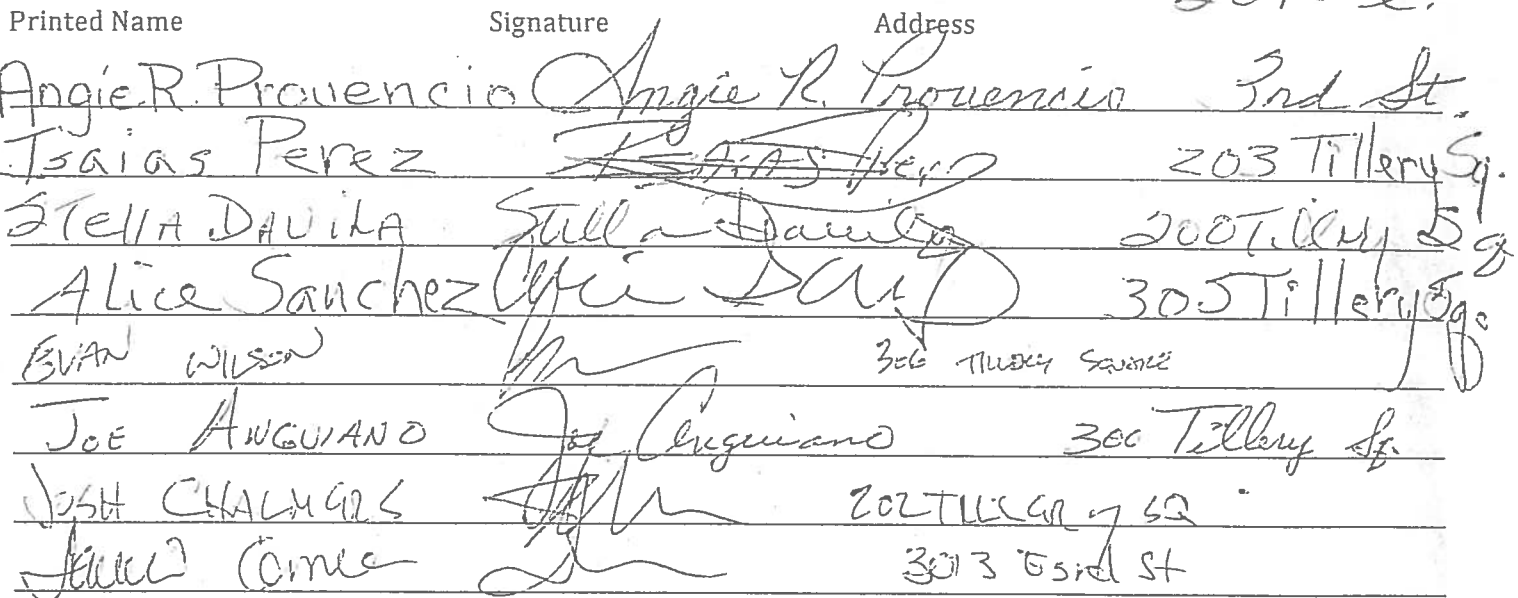 Printed Name Signature Address
Angie R. Provencio Angie R. Provencio 3rd St.
Isaias Perez Isaias Perez 203 Tillery Sq.
Stella Davila Stella Davila 200 Tillery Sq
Alice Sanchez 305 Tillery Sq.
EVAN WILSON 306 TILLERY SQUARE
JOE ANGUIANO Joe Anguiano 300 Tillery Sq.
JOSH CHALMERS 202 TILLERY SQ
3013 E 3rd St